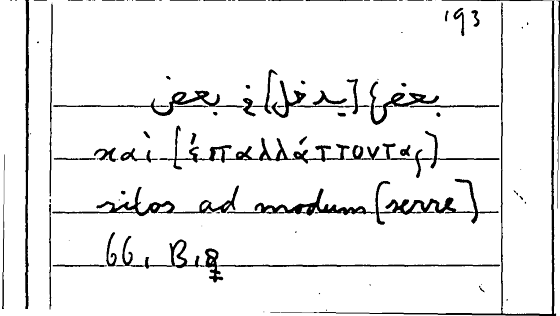 193
بعض [يدخل] في بعض
καὶ [ἐπαλλάττοντας]
sitos ad modum [serre]
66, B, 8